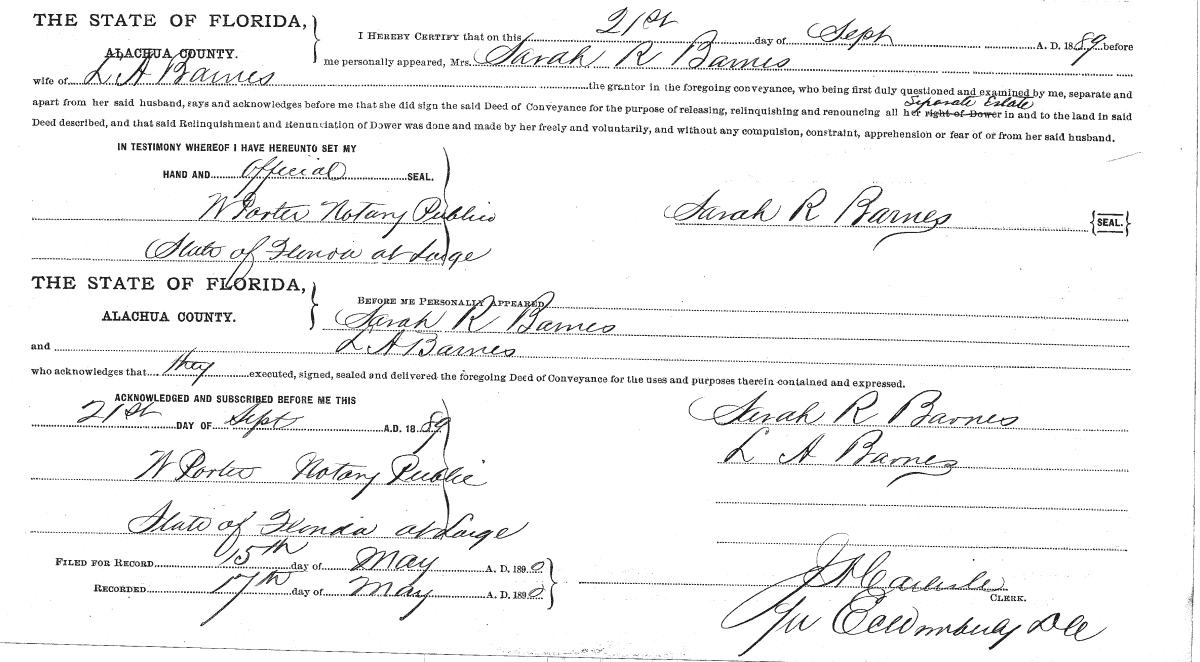 THE STATE OF FLORIDA,
ALACHUA COUNTY.
I HEREBY CERTIFY that on this 21st day of Sept A. D. 1889 before
me personally appeared, Mrs. Sarah R Barnes
wife of L A Barnes the grantor in the foregoing conveyance, who being first duly questioned and examined by me, separate and
Separate Estate
apart from her said husband, says and acknowledges before me that she did sign the said Deed of Conveyance for the purpose of releasing, relinquishing and renouncing all her right of Dower in and to the land in said
Deed described, and that said Relinquishment and Renunciation of Dower was done and made by her freely and voluntarily, and without any compulsion, constraint, apprehension or fear of or from her said husband.
IN TESTIMONY WHEREOF I HAVE HEREUNTO SET MY
HAND AND official SEAL.
W Porter Notary Public
Sarah R Barnes {SEAL.}
State of Florida at Large
THE STATE OF FLORIDA,
ALACHUA COUNTY.
BEFORE ME PERSONALLY APPEARED
Sarah R Barnes
and L A Barnes
who acknowledges that they executed, signed, sealed and delivered the foregoing Deed of Conveyance for the uses and purposes therein contained and expressed.
ACKNOWLEDGED AND SUBSCRIBED BEFORE ME THIS
21st DAY OF Sept A.D. 1889
Sarah R Barnes
L A Barnes
W Porter Notary Public
State of Florida at Large
FILED FOR RECORD 15th day of May A. D. 1890
RECORDED 17th day of May A. D. 1890
Carlisle
CLERK.